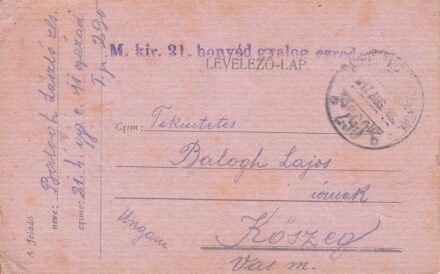 M. kir. 21. honvéd gyalog ezred
LEVELEZŐ-LAP
Czim: Tekintetes
Balogh Lajos
úrnak
Kőszeg
Vas m.
Ungarn
A feladó
neve: Balogh László
czime: 21. h. gy. e. 11 század
T. p. 290